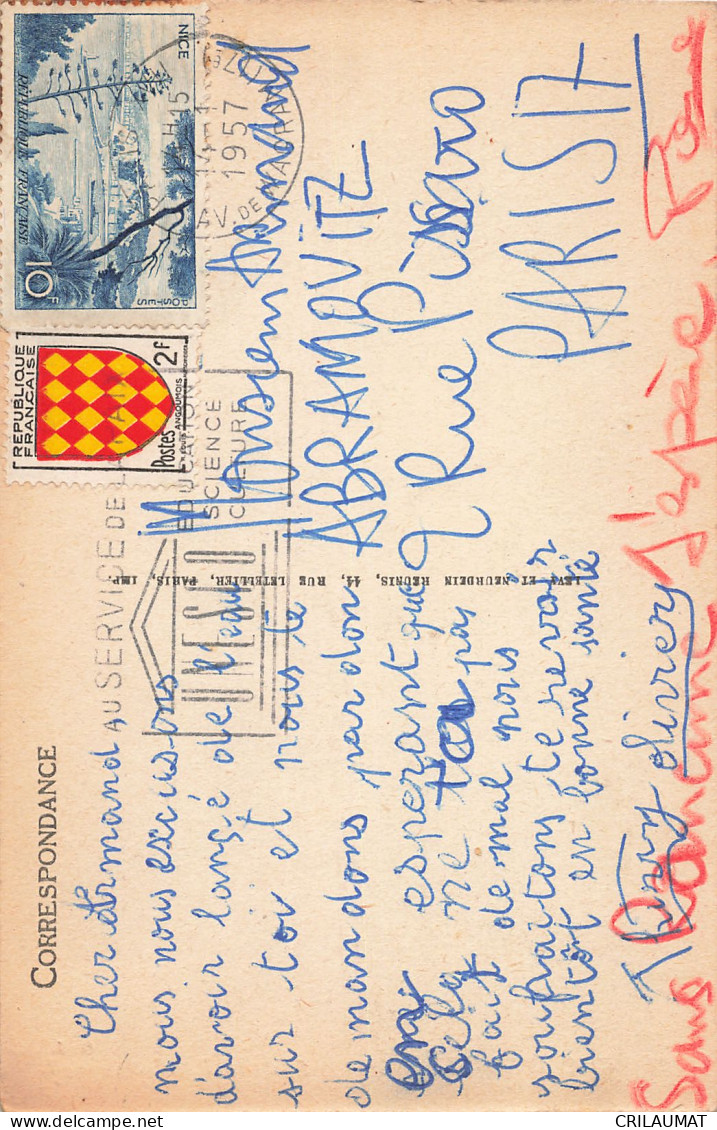 CORRESPONDANCE
Cher Armand
nous nous excusons
d'avoir lancé de l'eau
sur toi et nous te
demandons pardon
en esperant que
cela ne t'a pas
fait de mal nous
souhaitons te revoir
bientôt en bonne santé
Thierry Olivier
Sans Rancune J'espère. Rose
Monsieur Armand
ABRAMOVITZ
2 Rue Pissaro
PARIS 17
LEVY ET NEURDEIN RÉUNIS, 44, RUE LETELLIER, PARIS, IMP
NICE
REPUBLIQUE FRANÇAISE
POSTES
10F
REPUBLIQUE
FRANÇAISE
2F
Postes
ANGOUMOIS
1957
AV. DE WAGRAM
AU SERVICE DE LA PAIX
EDUCATION
SCIENCE
CULTURE
UNESCO
CRILAUMAT